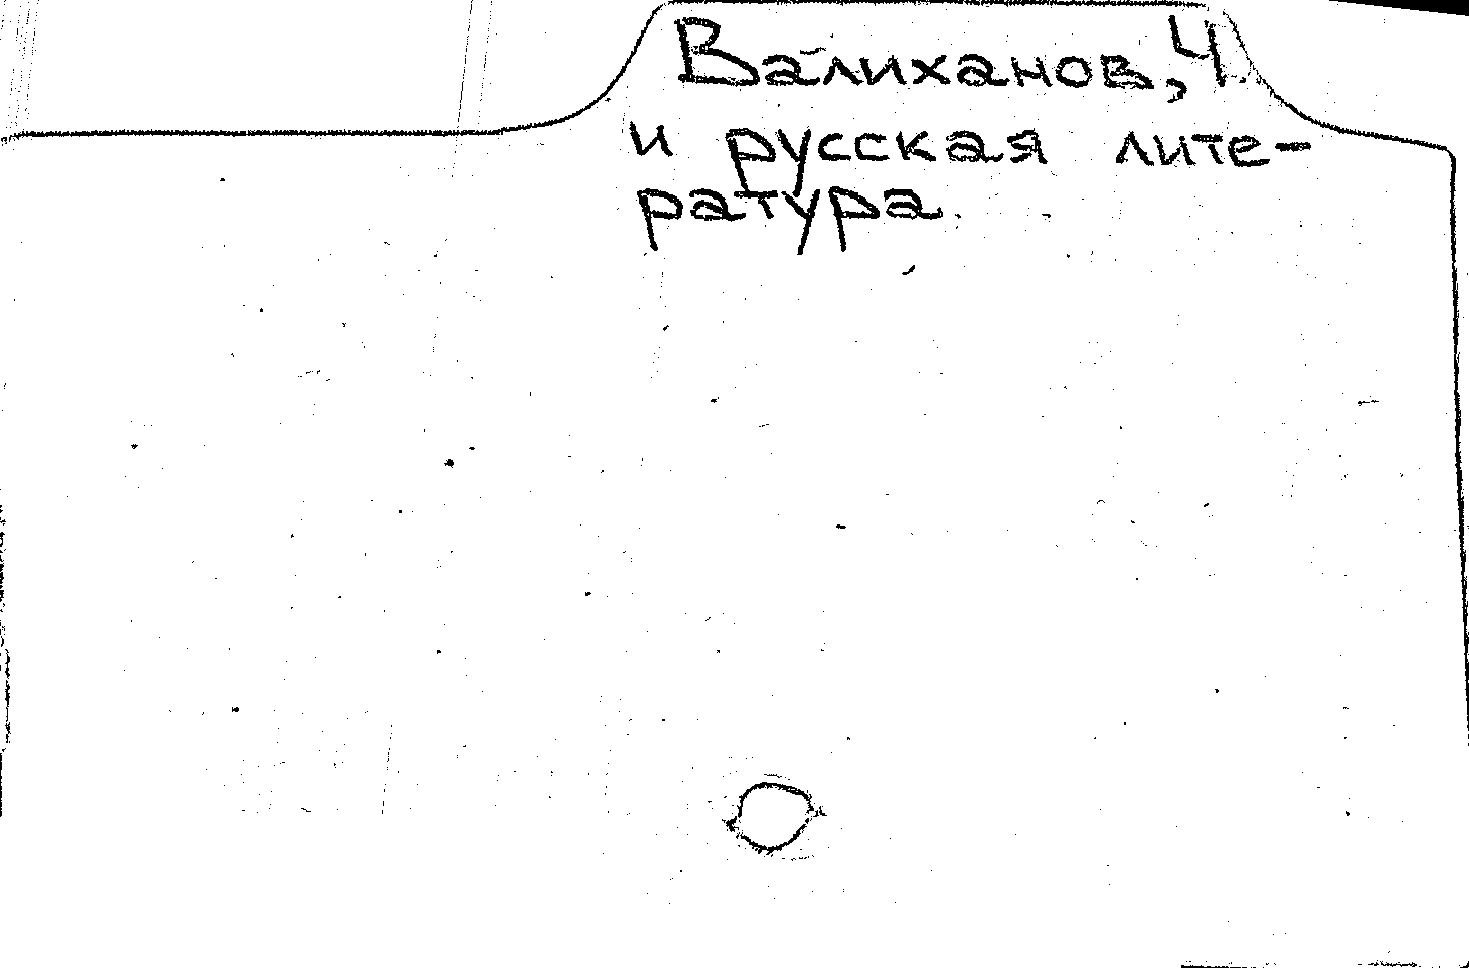 Валиханов, Ч.
и русская лите-
ратура.